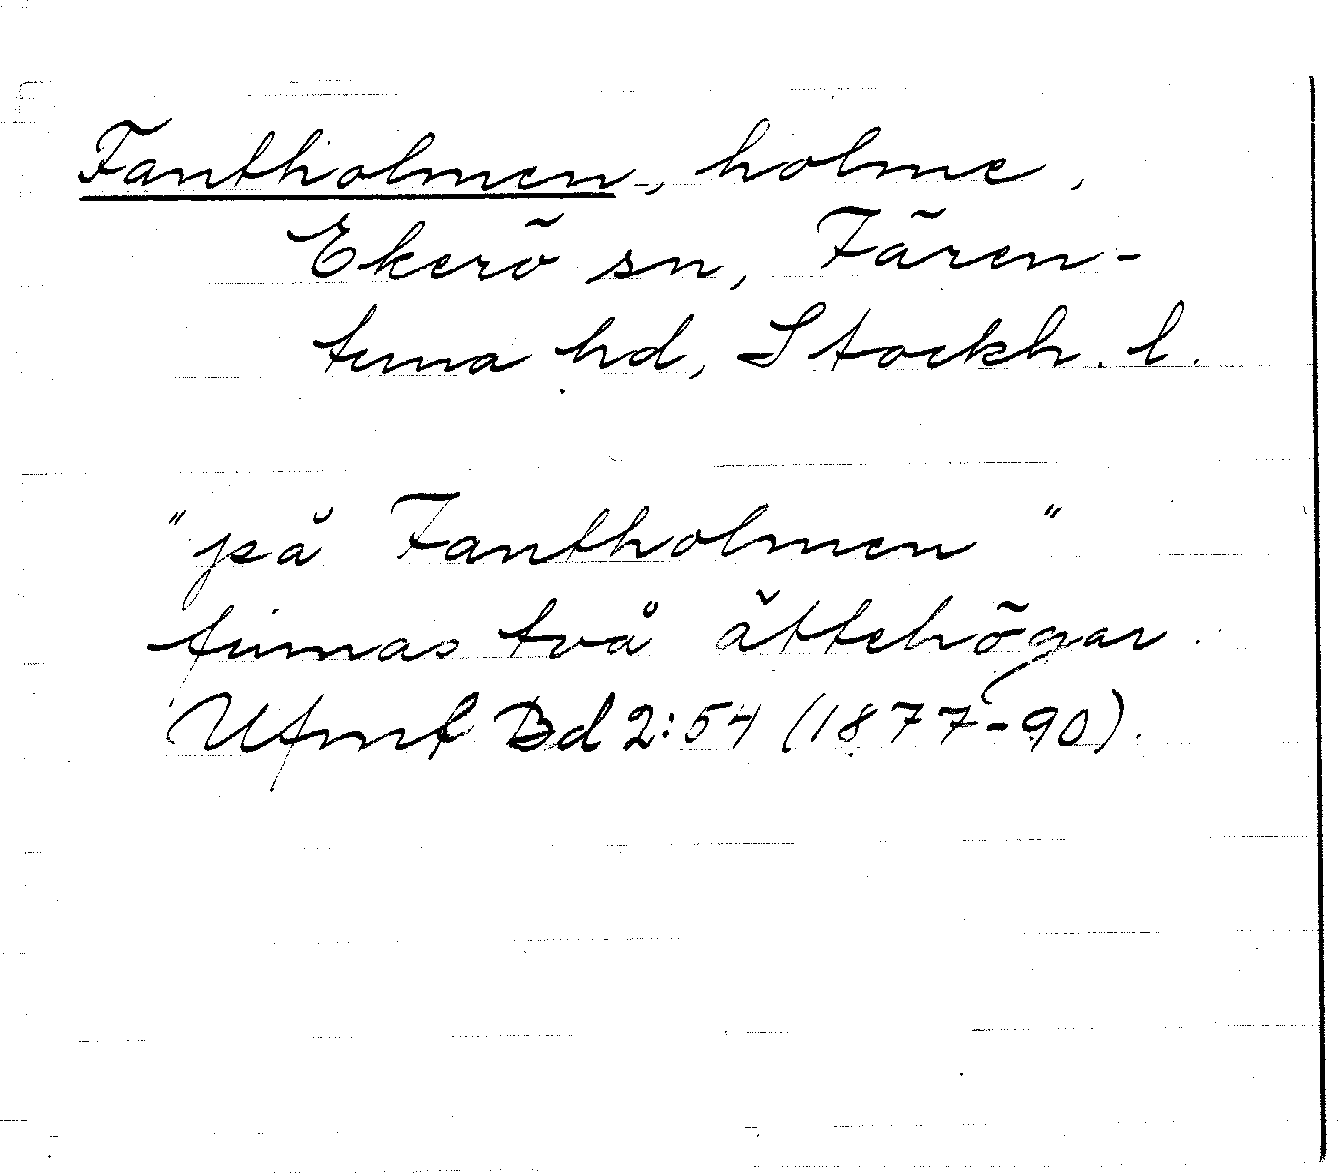 Fantholmen, holme,
Ekerö sn, Fären-
tuna hd, Stockh. l.
"på Fantholmen"
finnas två ättehögar.
Ufmt Bd 2:54 (1877-90).